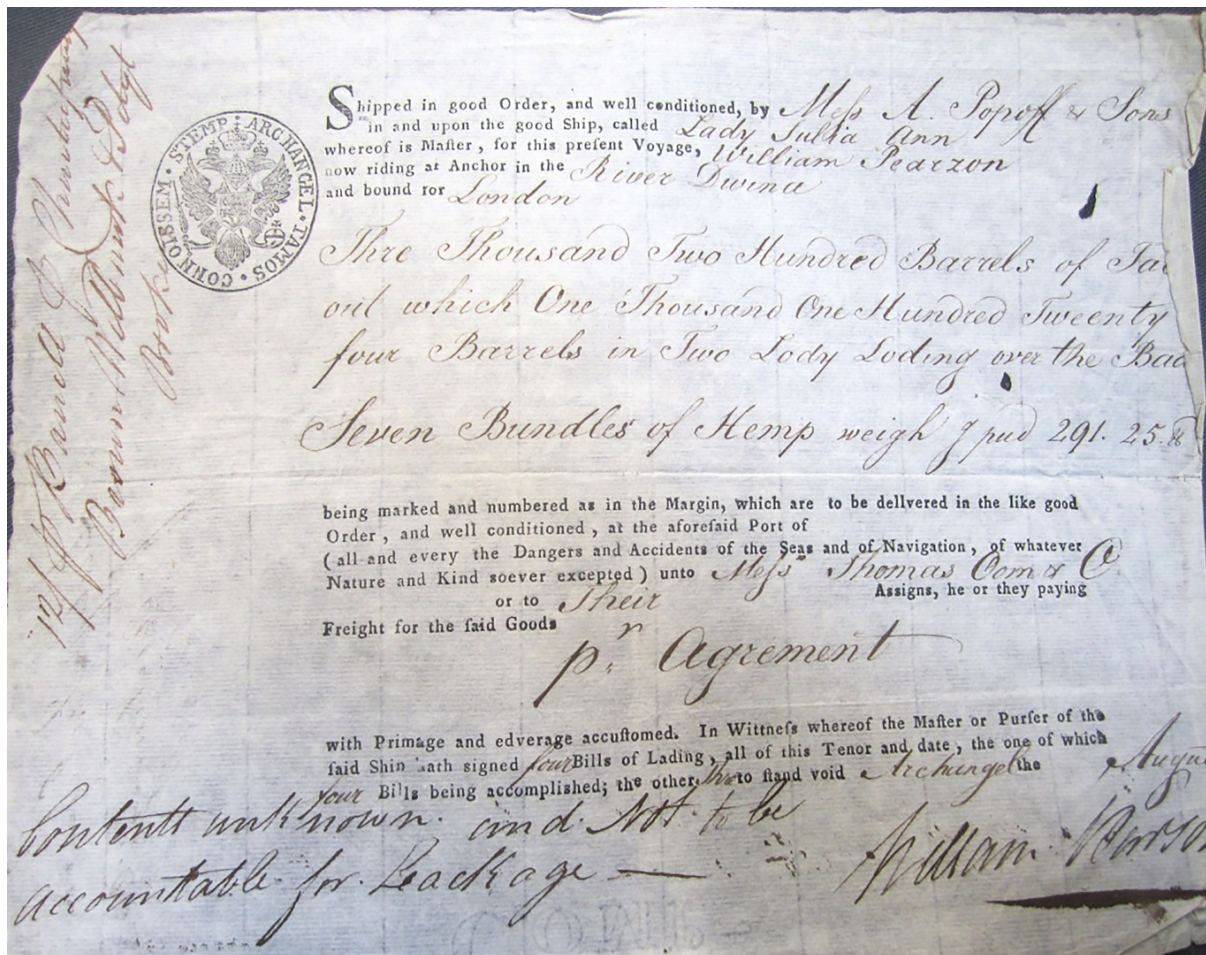 CONNOISSEM. STEMP. ARCHANGEL. TAMOS
Shipped in good Order, and well conditioned, by Mess A. Popoff & Sons
in and upon the good Ship, called Lady Julia Ann
whereof is Maſter, for this preſent Voyage, William Pearzon
now riding at Anchor in the River Dwina
and bound for London
Thre Thousand Two Hundred Barrels of Ta
out which One Thousand One Hundred Tweenty
four Barrels in Two Lody Loding over the Ba
Seven Bundles of Hemp weigh g pud 291. 25.
being marked and numbered as in the Margin, which are to be dellvered in the like good
Order, and well conditioned, at the aforeſaid Port of
(all and every the Dangers and Accidents of the Seas and of Navigation, of whatever
Nature and Kind soever excepted) unto Mess Thomas Oom & C
or to Their Assigns, he or they paying
Freight for the ſaid Goods
pr Agrement
with Primage and edverage accuſtomed. In Wittneſs whereof the Maſter or Purſer of the
ſaid Ship hath signed four Bills of Lading, all of this Tenor and date, the one of which
four Bills being accomplished; the other thre to ſtand void Archangel the Augu
Contentt unknown. and Not to be
accountable for Leackage
William Pearson